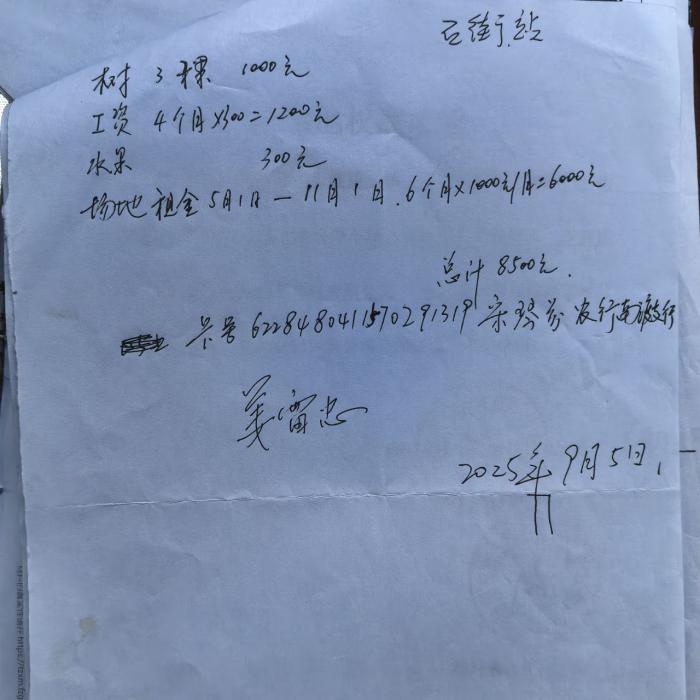 石街站
树 3棵 1000元
工资 4个月×300=1200元
水果 300元
场地租金5月1日—11月1日.6个月×1000元/月=6000元
总计 8500元.
卡号 6228480411570291319 宋琴芬 农行南渡支行
姜雷忠
2025年9月5日,